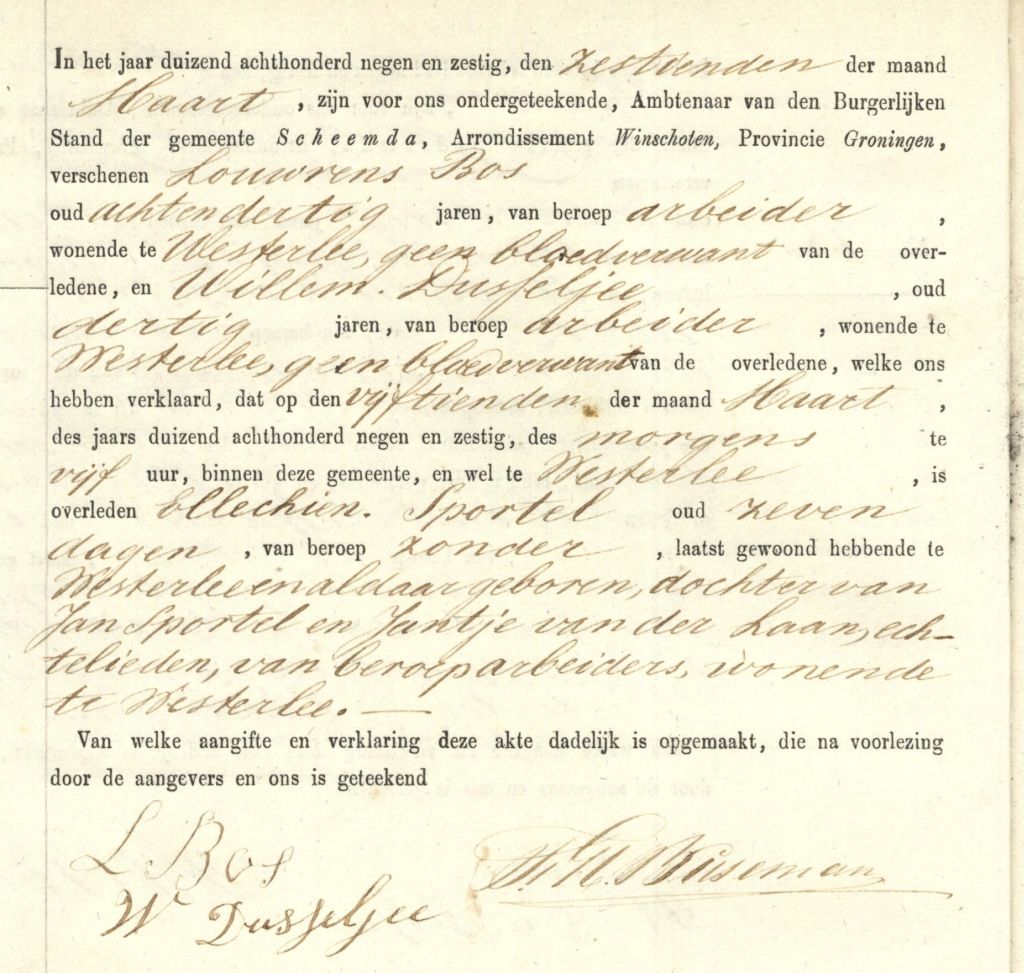 In het jaar duizend achthonderd negen en zestig, den zestienden der maand
Maart, zijn voor ons ondergeteekende, Ambtenaar van den Burgerlijken
Stand der gemeente Scheemda, Arrondissement Winschoten, Provincie Groningen,
verschenen Louwrens Bos
oud achtendertig jaren, van beroep arbeider,
wonende te Westerlee, geen bloedverwant van de over-
ledene, en Willem. Dusseljee, oud
dertig jaren, van beroep arbeider, wonende te
Westerlee, geen bloedverwant van de overledene, welke ons
hebben verklaard, dat op den vijftienden der maand Maart,
des jaars duizend achthonderd negen en zestig, des morgens te
vijf uur, binnen deze gemeente, en wel te Westerlee, is
overleden Ellechien. Sportel oud zeven
dagen, van beroep zonder, laatst gewoond hebbende te
Westerlee en aldaar geboren, dochter van
Jan Sportel en Jantje van der Laan, ech-
telieden, van beroep arbeiders, wonende
te Westerlee. —
Van welke aangifte en verklaring deze akte dadelijk is opgemaakt, die na voorlezing
door de aangevers en ons is geteekend
L Bos
W Dusseljee